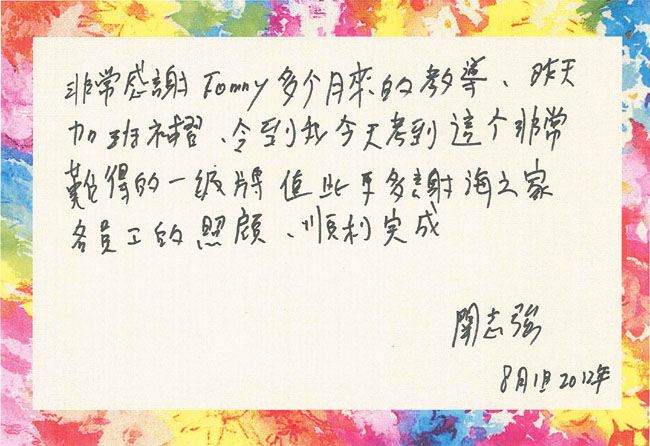 非常感謝 Tommy 多个月來的教導、昨天
加班補習、令到我今天考到這个非常
難得的一級牌 值此再多謝海之家
各員工的照顧、順利完成
關志強
8月1日2012年